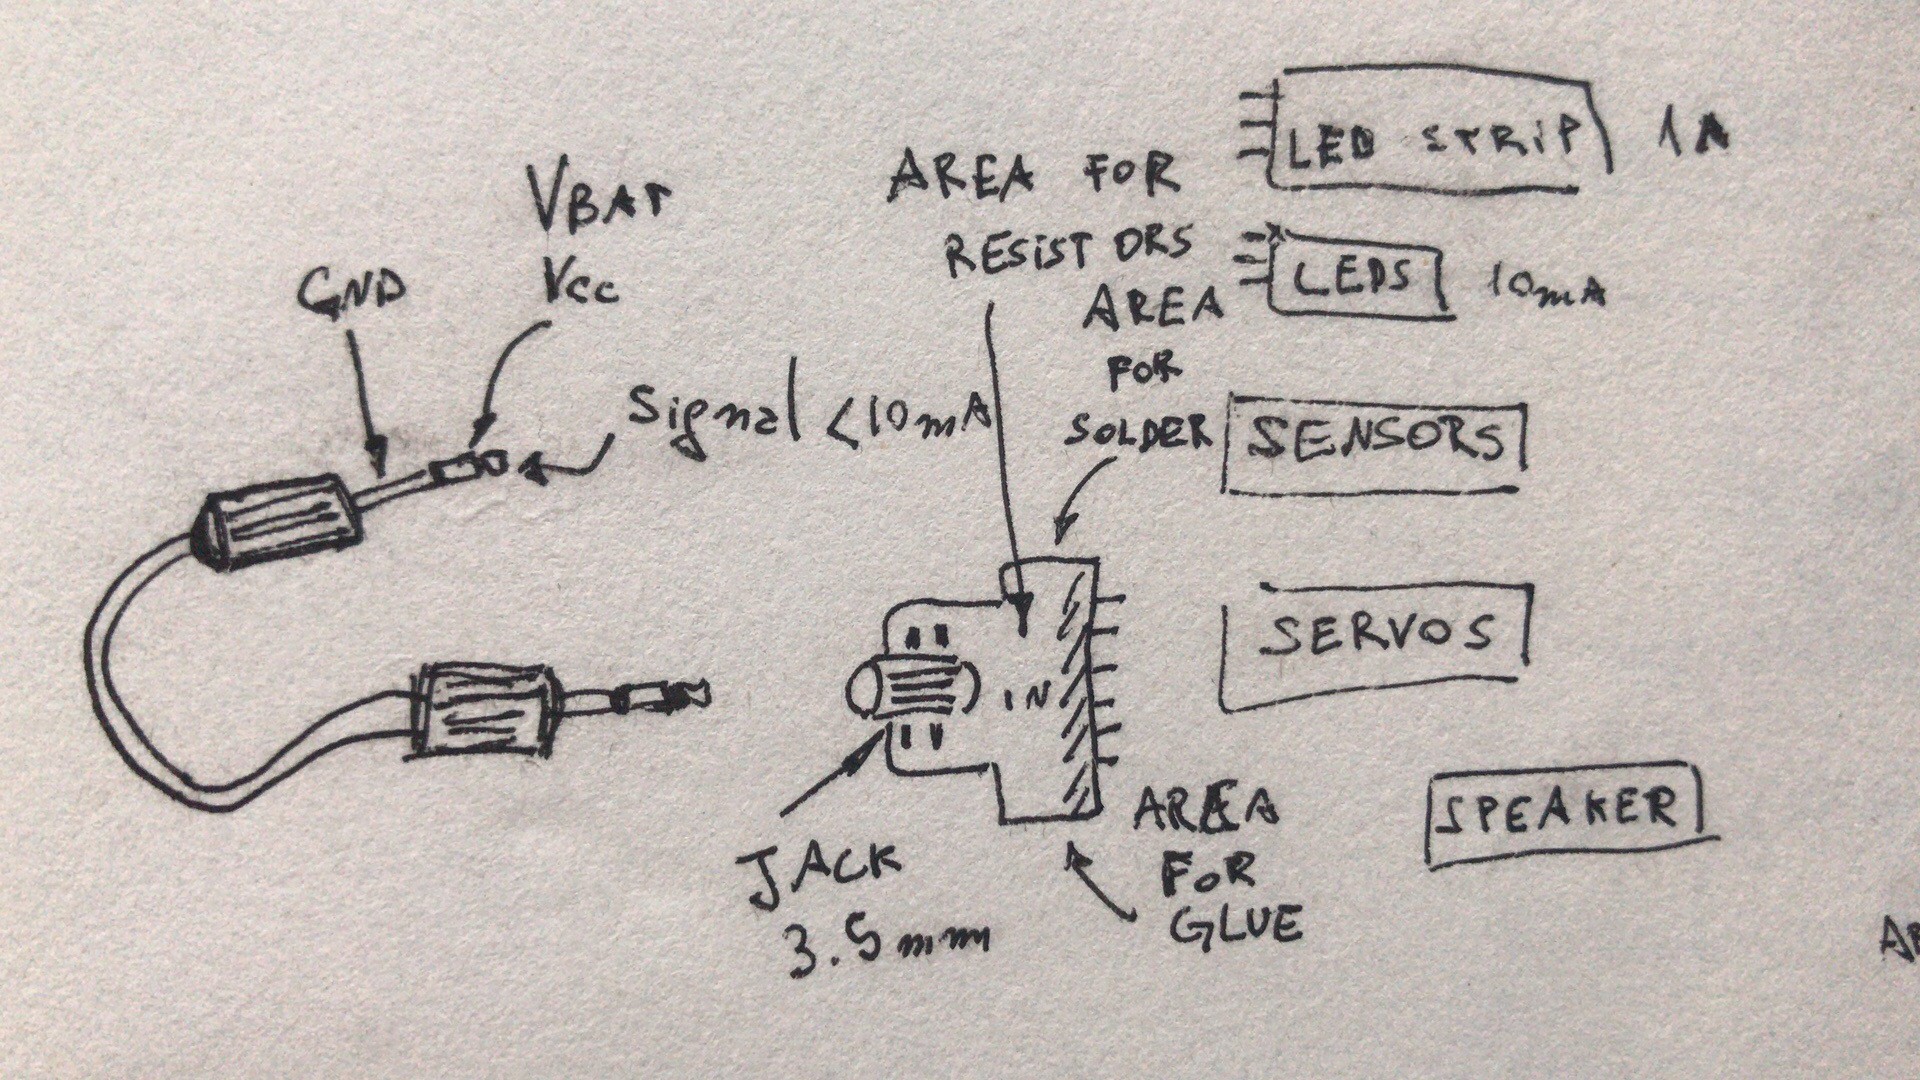 VBAT
Vcc
GND
Signal <10mA
AREA FOR
RESISTORS
AREA
FOR
SOLDER
LED STRIP 1A
LEDS 10mA
SENSORS
SERVOS
SPEAKER
IN
JACK
3.5mm
AREA
FOR
GLUE